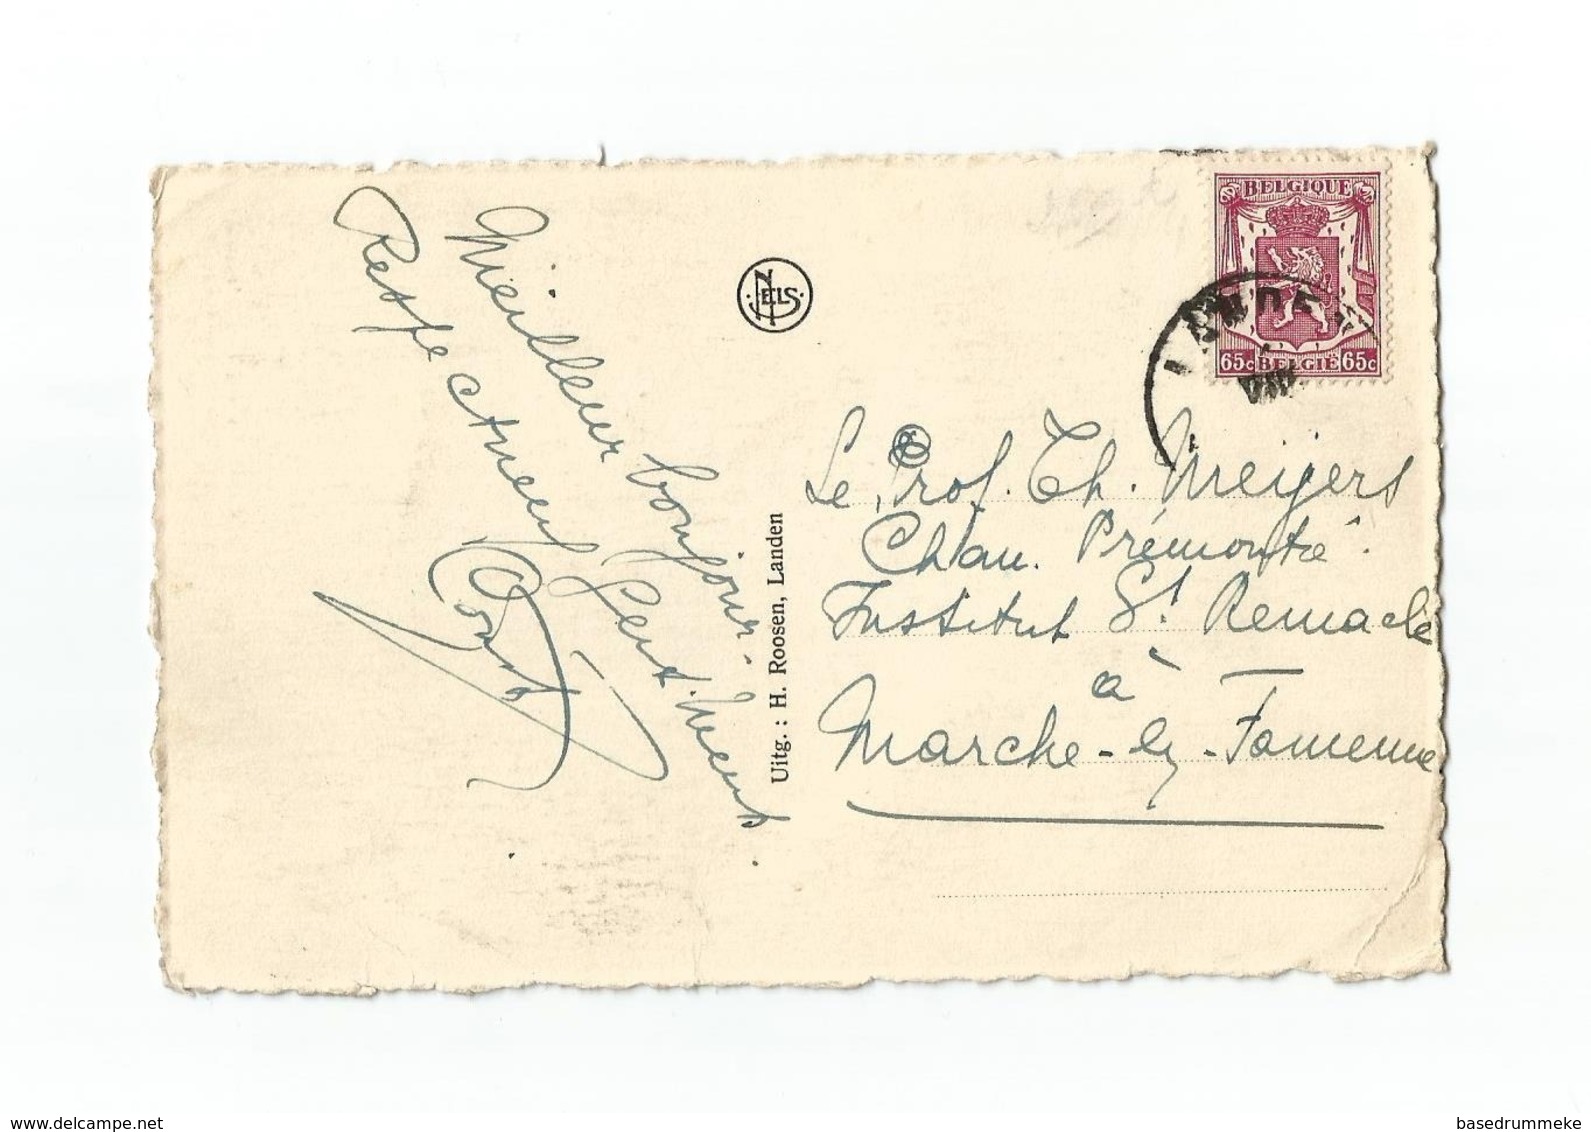 Meilleur bonjour.
NELS
Uitg. : H. Roosen, Landen
BELGIQUE
65c BELGIË 65c
LANDEN
Le Prof. Th. Meijers
Chan. Prémontré
Institut St Remacle
à
Marche-en-Famenne
delcampe.net
basedrummeke